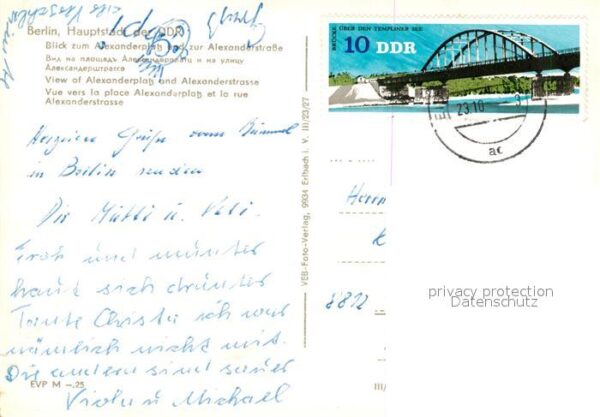 Berlin, Hauptstadt der DDR
Blick zum Alexanderplatz und zur Alexanderstraße
Вид на площадь Александерплатц и на улицу
Александерштрассе
View of Alexanderplatz and Alexanderstrasse
Vue vers la place Alexanderplatz et la rue
Alexanderstrasse
BRÜCKE ÜBER DEN TEMPLINER SEE
10 DDR
23.10
ac
Grüße vom Bummel
in Berlin senden
Die Mutti u. Vati.
Froh und munter
haut sich drunter
Tante Christa ich war
nämlich nicht mit.
Die andern sind sauer
Viola u Michael
EVP M –.25
VEB-Foto-Verlag, 9934 Erlbach i. V. III/23/27
Herrn
K
8812
III/
privacy protection
Datenschutz